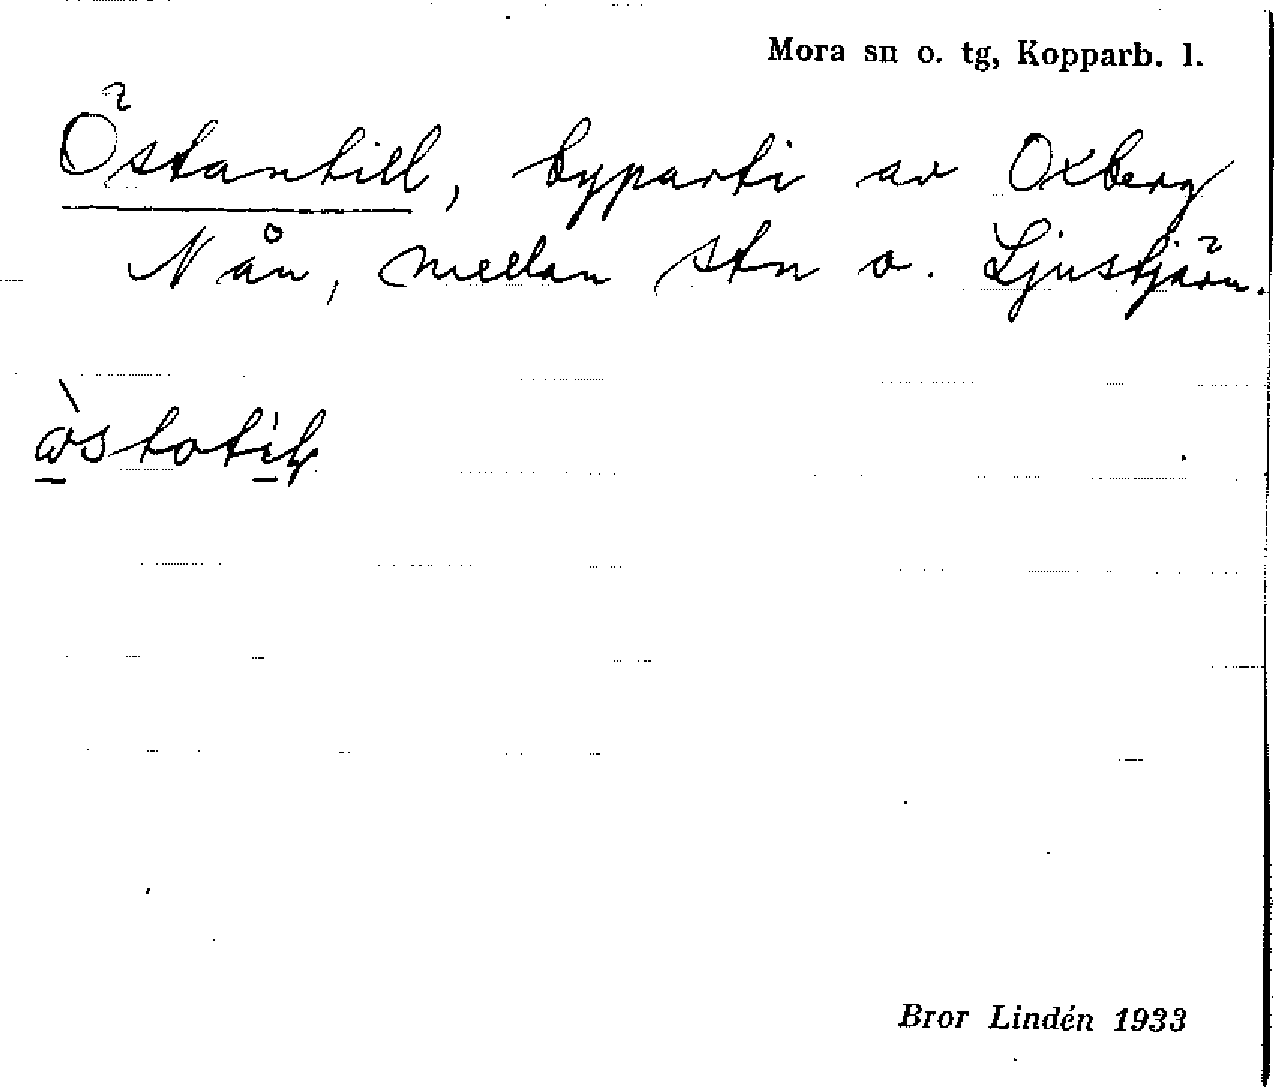 Mora sn o. tg, Kopparb. l.
Östantill, byparti av Oxberg
N ån, mellan stn o. Ljustjärn.
Bror Lindén 1933